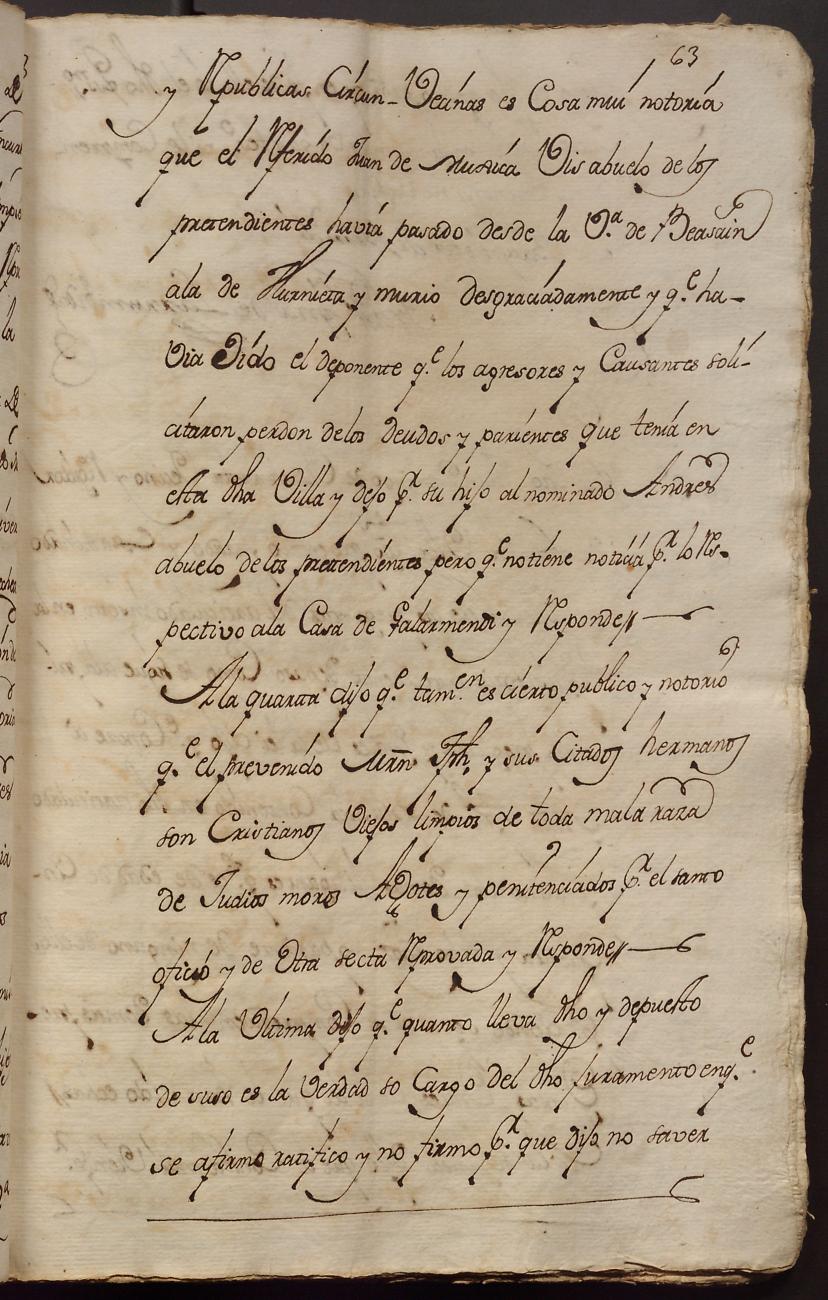 63
y Rpublicas Circun-Vecinas es Cosa mui notoria
que el Rferido Juan de Muxica Visabuelo de los
pretendientes havia pasado desde la V.ª de Beasain
ala de Hurnieta y murio desgraciadamente y q.e ha-
via oido el deponente q.e los agresores y Causantes soli-
citaron perdon delos deudos y parientes que tenia en
esta dha Villa y dejo p.r su hijo al nominado Andres
abuelo de los pretendientes pero q.e notiene noticia p.r lo Rs-
pectivo ala Casa de Galarmendi y Rsponde
Ala quarta dijo q.e tam.en es cierto publico y notorio
q.e el prevenido Mrn Jph. y sus Citados hermanos
son Cristianos Viejos limpios de toda mala raza
de Judios moros Agotes y penitenciados p.r el santo
oficio y de Otra secta Rprovada y Rsponde
Ala Ultima dijo q.e quanto lleva dho y depuesto
de suso es la verdad so Cargo del dho juramento enq.e
se afirmo ratifico y no firmo p.r que dijo no saver